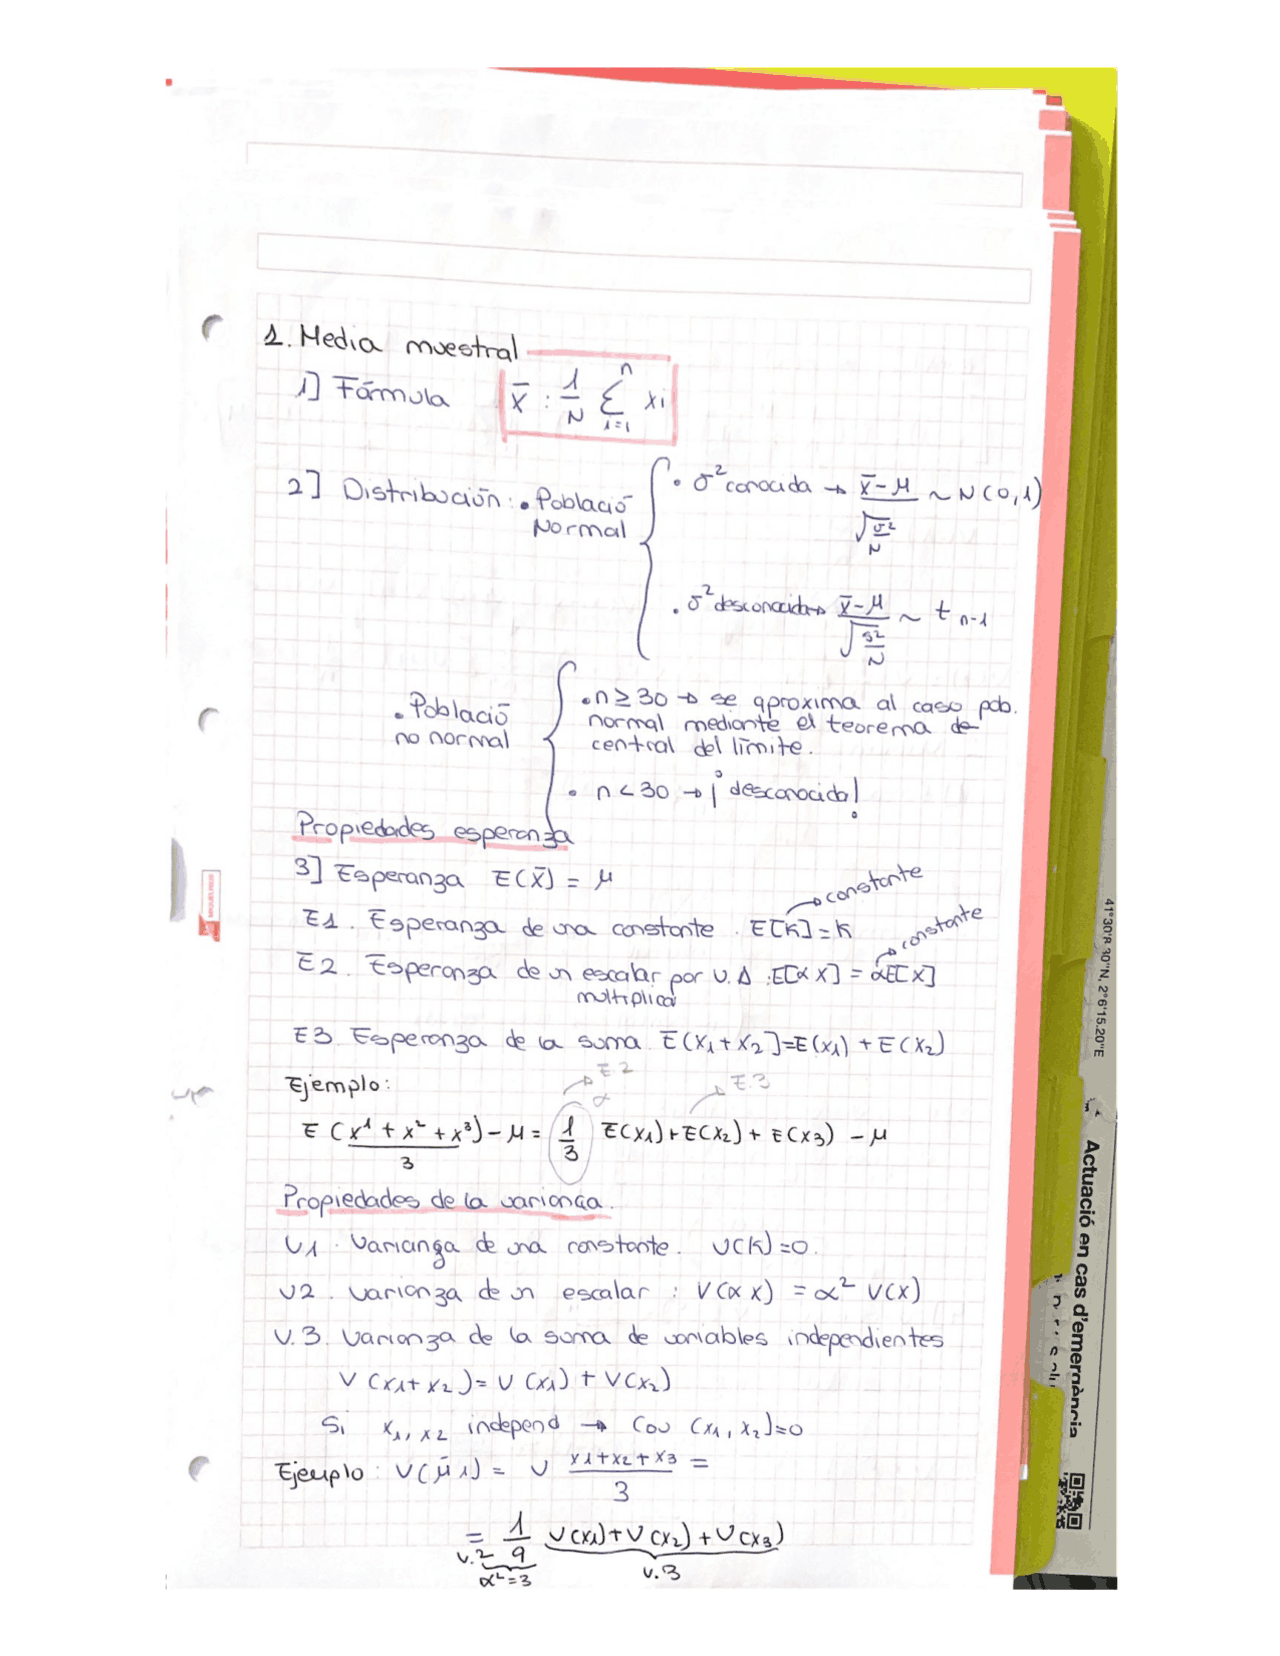 1. Media muestral
1] Fórmula X̄ : 1/N Σ i=1 n xi
2] Distribución: • Població Normal
• σ² conocida → x̄-μ / √σ²/N ~ N(0,1)
• σ² desconocida → x̄-μ / √s²/N ~ t n-1
• Població no normal
• n ≥ 30 → se aproxima al caso pob.
normal mediante el teorema de
central del límite.
• n < 30 → ¡desconocida!
Propiedades esperanza
3] Esperanza E(X̄) = μ
→ constante
E1. Esperanza de una constante. E[K] = K
→ constante
E2. Esperanza de un escalar por v.A : E[α X] = αE[X]
multiplica
E3. Esperanza de la suma E(X1 + X2] = E(X1) + E(X2)
Ejemplo:
E.2
α
E.3
E (x¹ + x² + x³) / 3 - μ = 1/3 E(X1) + E(X2) + E(X3) - μ
Propiedades de la varianza.
V1. Varianza de una constante. V(K) = 0.
V2. Varianza de un escalar : V(α x) = α² V(x)
V.3. Varianza de la suma de variables independientes
V (x1 + x2) = V (x1) + V(x2)
Si x1, x2 independ → Cov (x1, x2) = 0
Ejemplo : V(μ̄ 1) = V x1+x2+x3 / 3 =
= 1/9 V(x1) + V(x2) + V(x3)
V.2
α² = 3
V.3
41°30'8.30"N, 2°6'15.20"E
Actuació en cas d'emergència